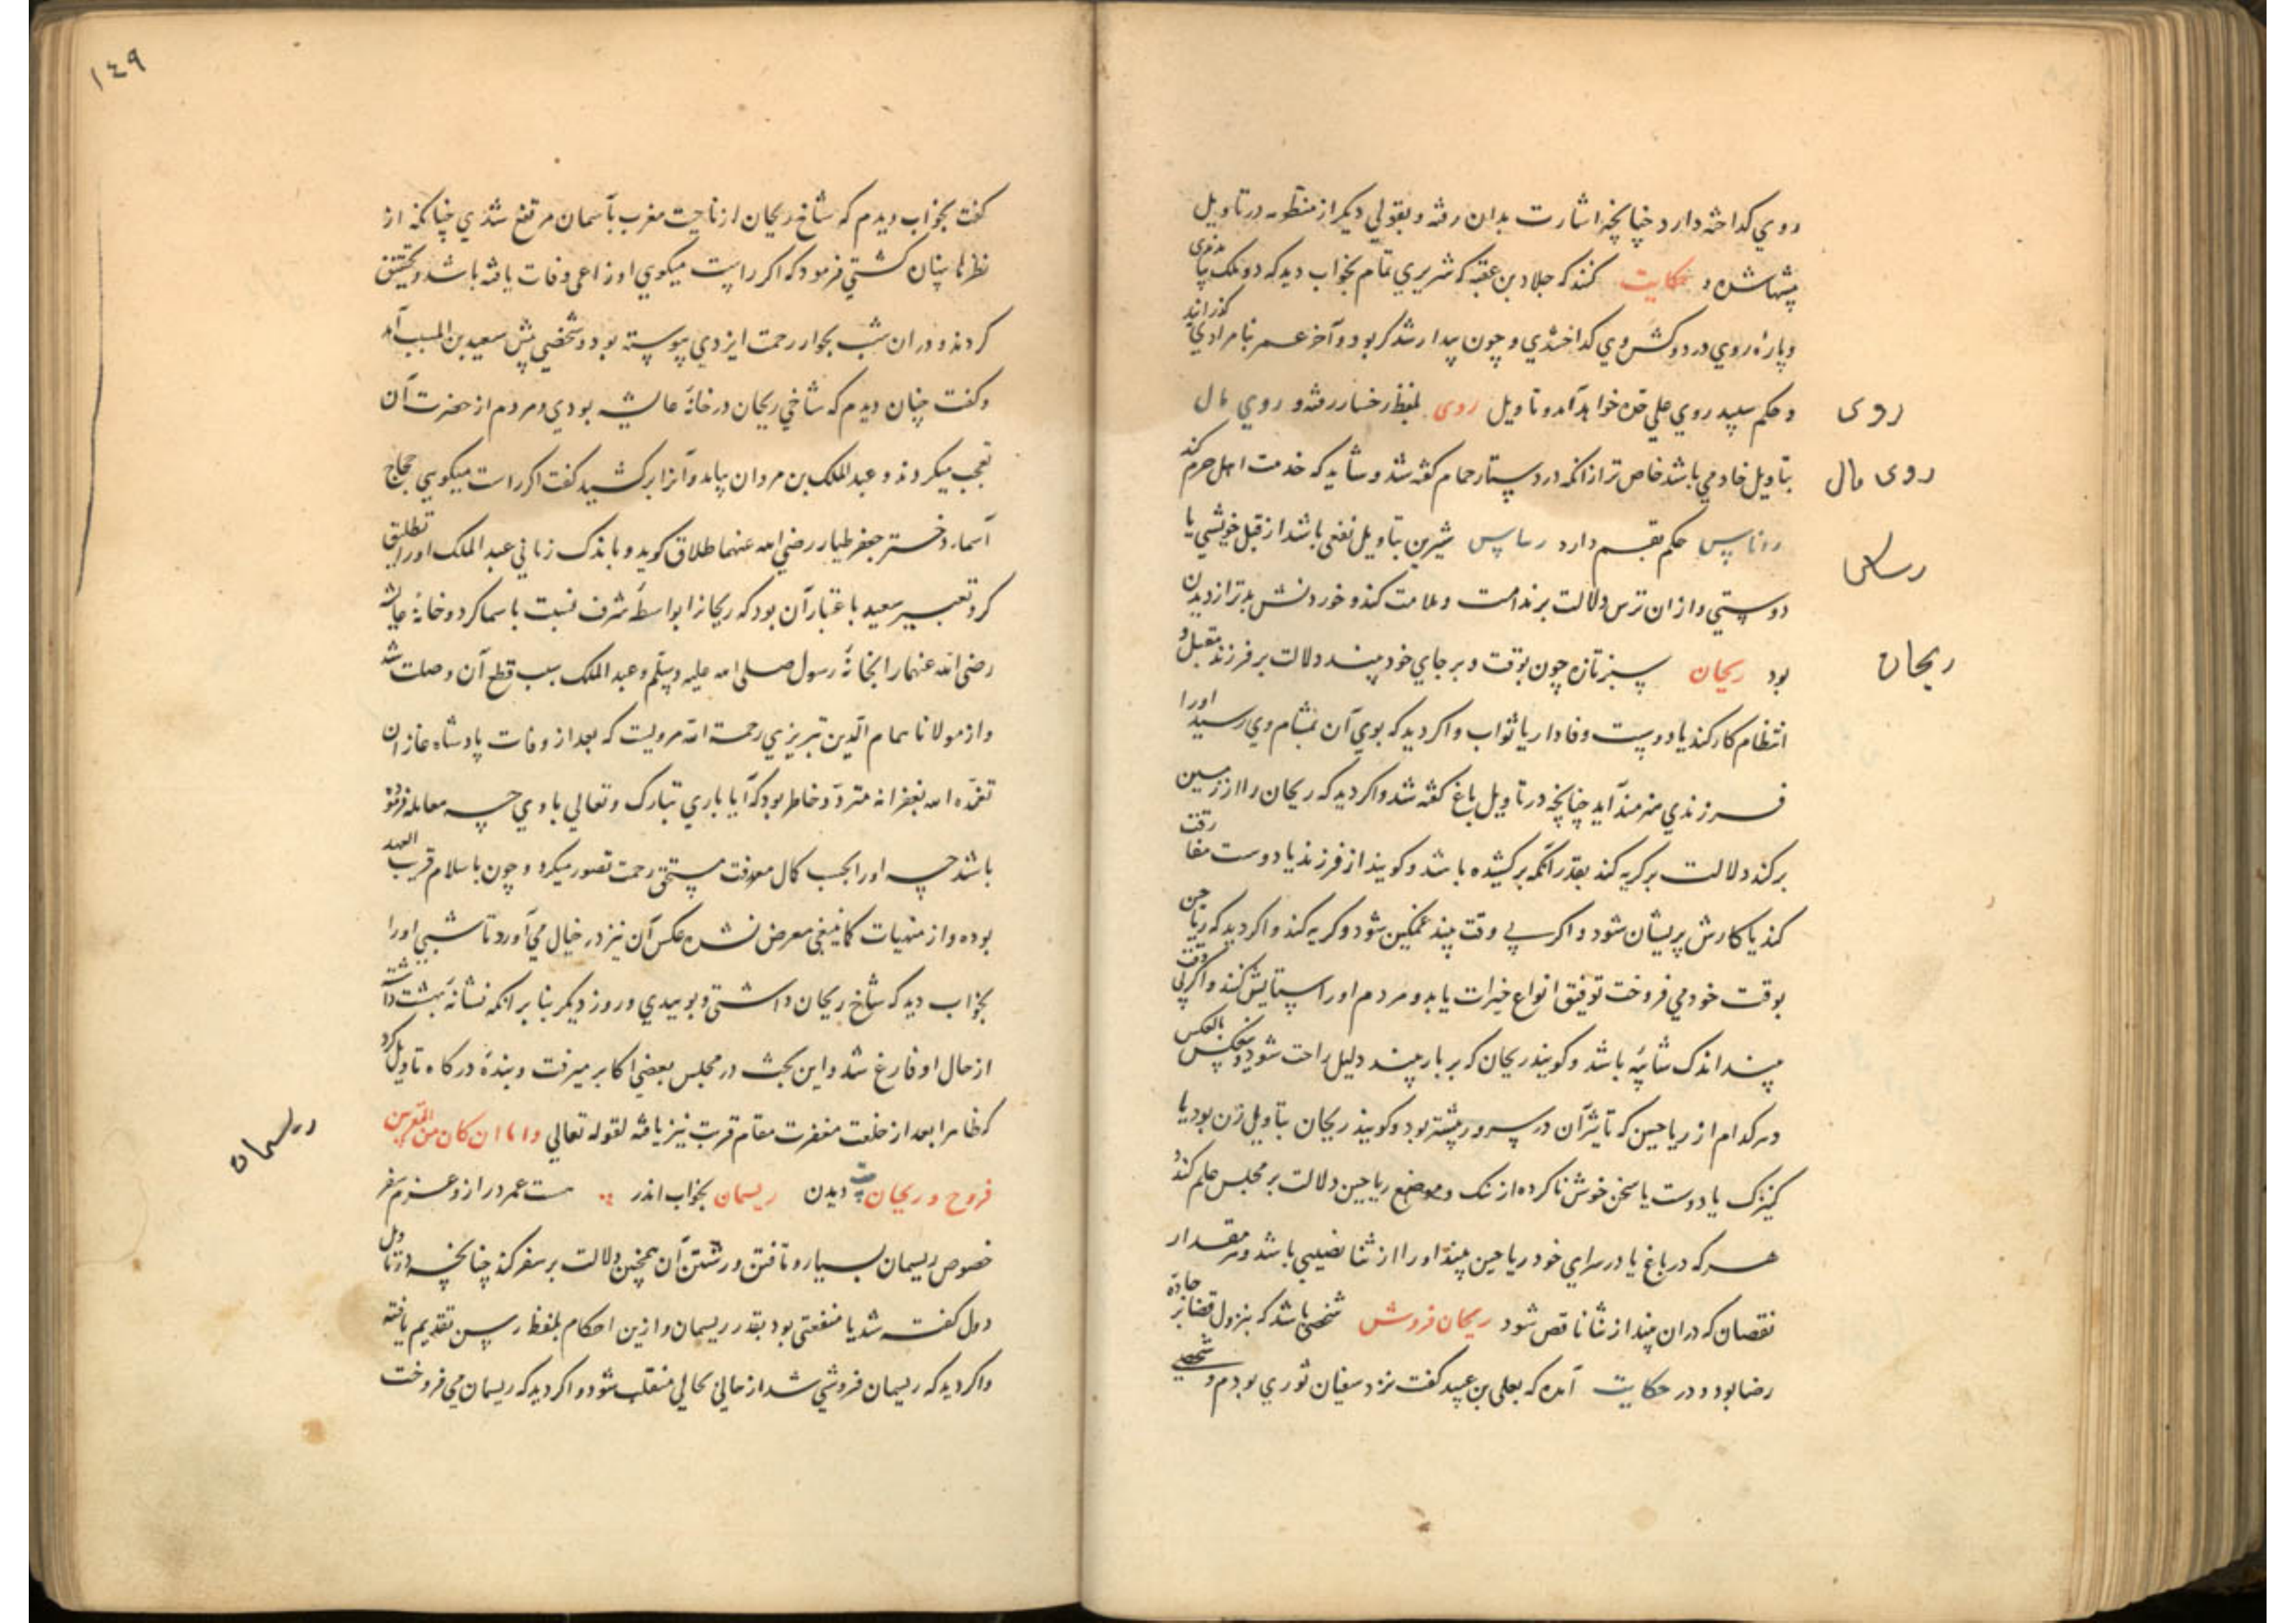 روي كداخته دارد چنانچه اشارت بدان رفته و بقولي ديكر از منظومه در تاويل
حكايت كنند كه جلاد بن عقبه كه شريري تمام بخواب ديد كه دو ملك
و پارۀ روي در دو كوشش وي كداختندي و چون بيدار شد كر بود و آخر عمر بنامرادي كذرانيد
و حكم سپيد روي علي حده خواهد آمد و تاويل روى بلفظ رخسار رفته و روي مال
بتاويل خادمي باشد خاص تر از انكه در دستار حمام كفته شد و شايد كه خدمت اهل حرم كند
حكم دارد ريباس شيرين بتاويل نفعي باشد از قبل خويشي يا
دوستي و از ان ترس دلالت بر ندامت و ملامت كند و خوردنش بدتر از ديدن
بود ريحان سبز تازه چون بوقت و بر جاي خود بيند دلالت بر فرزند مقبل و
انتظام كار كند يا دوست وفادار يا ثواب و اكر ديد كه بوي آن بمشام وي رسيد او را
فرزندي هنرمند آيد چنانچه در تاويل باغ كفته شد و اكر ديد كه ريحان را از زمين
بركند دلالت بر كريه كند بقدر آنكه بركشيده باشد و كويند از فرزند يا دوست مفارقت
كند يا كارش پريشان شود و اكر بي وقت بيند غمكين شود و كريه كند و اكر ديد كه رياحين
بوقت خود مي فروخت توفيق انواع خيرات يابد و مردم او را ستايش كنند و اكر بي وقت
بيند اندك شائبه باشد و كويند ريحان كه بر بار بيند دليل راحت شود و بعكس بالعكس
و هر كدام از رياحين كه تاثير آن در سرور بيشتر بود و كويند ريحان بتاويل زن بود يا
كنيزك يا دوست يا سخن خوش ناكرده از نك و موضع رياحين دلالت بر مجلس علم كند و
هر كه در باغ يا در سراي خود رياحين بيند او را از ثنا نصيبي باشد و هر مقدار
نقصان كه در ان بيند از ثنا ناقص شود ريحان فروش شخصي باشد كه بنزول قضا بر جادۀ
رضا بود و در حكايت آمده كه يعلى بن عبيد كفت نزد سفيان ثوري بودم و شخصي
روى
روى مال
ريحان
١٤٩
كفت بخواب ديدم كه شاخ ريحان از ناحيت مغرب بآسمان مرتفع شدي چنانكه از
نظرها پنهان كشتي فرمود كه اكر راست ميكوي اوزاعي وفات يافته باشد و تحقيق
كردند و در ان شب بجوار رحمت ايزدي پيوسته بود و شخصي پيش سعيد بن المسيب آمد
و كفت چنان ديدم كه شاخي ريحان در خانۀ عايشه بودي و مردم از حضرت آن
تعجب ميكردند و عبد الملك بن مروان بيامد و آنرا بركشيد كفت اكر راست ميكويي حجاج
اسما دختر جعفر طيار رضي الله عنهما طلاق كويد و باندك زماني عبد الملك او را تطليق
كرد تعبير سعيد باعتبار آن بود كه ريحانرا بواسطۀ شرف نسبت باسما كرد و خانۀ عايشه
رضى الله عنها را بخانۀ رسول صلى الله عليه وسلم و عبد الملك سبب قطع آن وصلت شد
و از مولانا همام الدين تبريزي رحمة الله مرويست كه بعد از وفات پادشاه غازان
تغمده الله بغفرانه متردد خاطر بود كه آيا باري تبارك و تعالي با وي چه معامله فرموده
باشد چه او را بحسب كمال معرفت مستحق رحمت تصور ميكرد و چون باسلام قريب العهد
بوده و از منهيات كما ينبغي معرض نشده عكس آن نيز در خيال مي آورد تا شبي او را
بخواب ديد كه شاخ ريحان داشتي و بوييدي و روز ديكر بنا بر انكه نشانۀ بهشت داشته
از حال او فارغ شد و اين بحث در مجلس بعضي اكابر ميرفت و بندۀ دركاه تاويل كرد
كه ظاهرا بعد از خلعت مغفرت مقام قربت نيز يافته لقوله تعالي و اما ان كان من المقربين
فروح و ريحان ديدن ريسمان بخواب اندر هست عمر دراز و عزم سفر
خصوص ريسمان بسيار و تافتن و رشتن آن همچنين دلالت بر سفر كند چنانچه در تاويل
دول كفته شد يا منفعتي بود بقدر ريسمان و ازين احكام بلفظ رسن تقديم يافته
و اكر ديد كه ريسمان فروشي شد از حالي بحالي منقلب شود و اكر ديد كه ريسمان مي فروخت
ريسمان